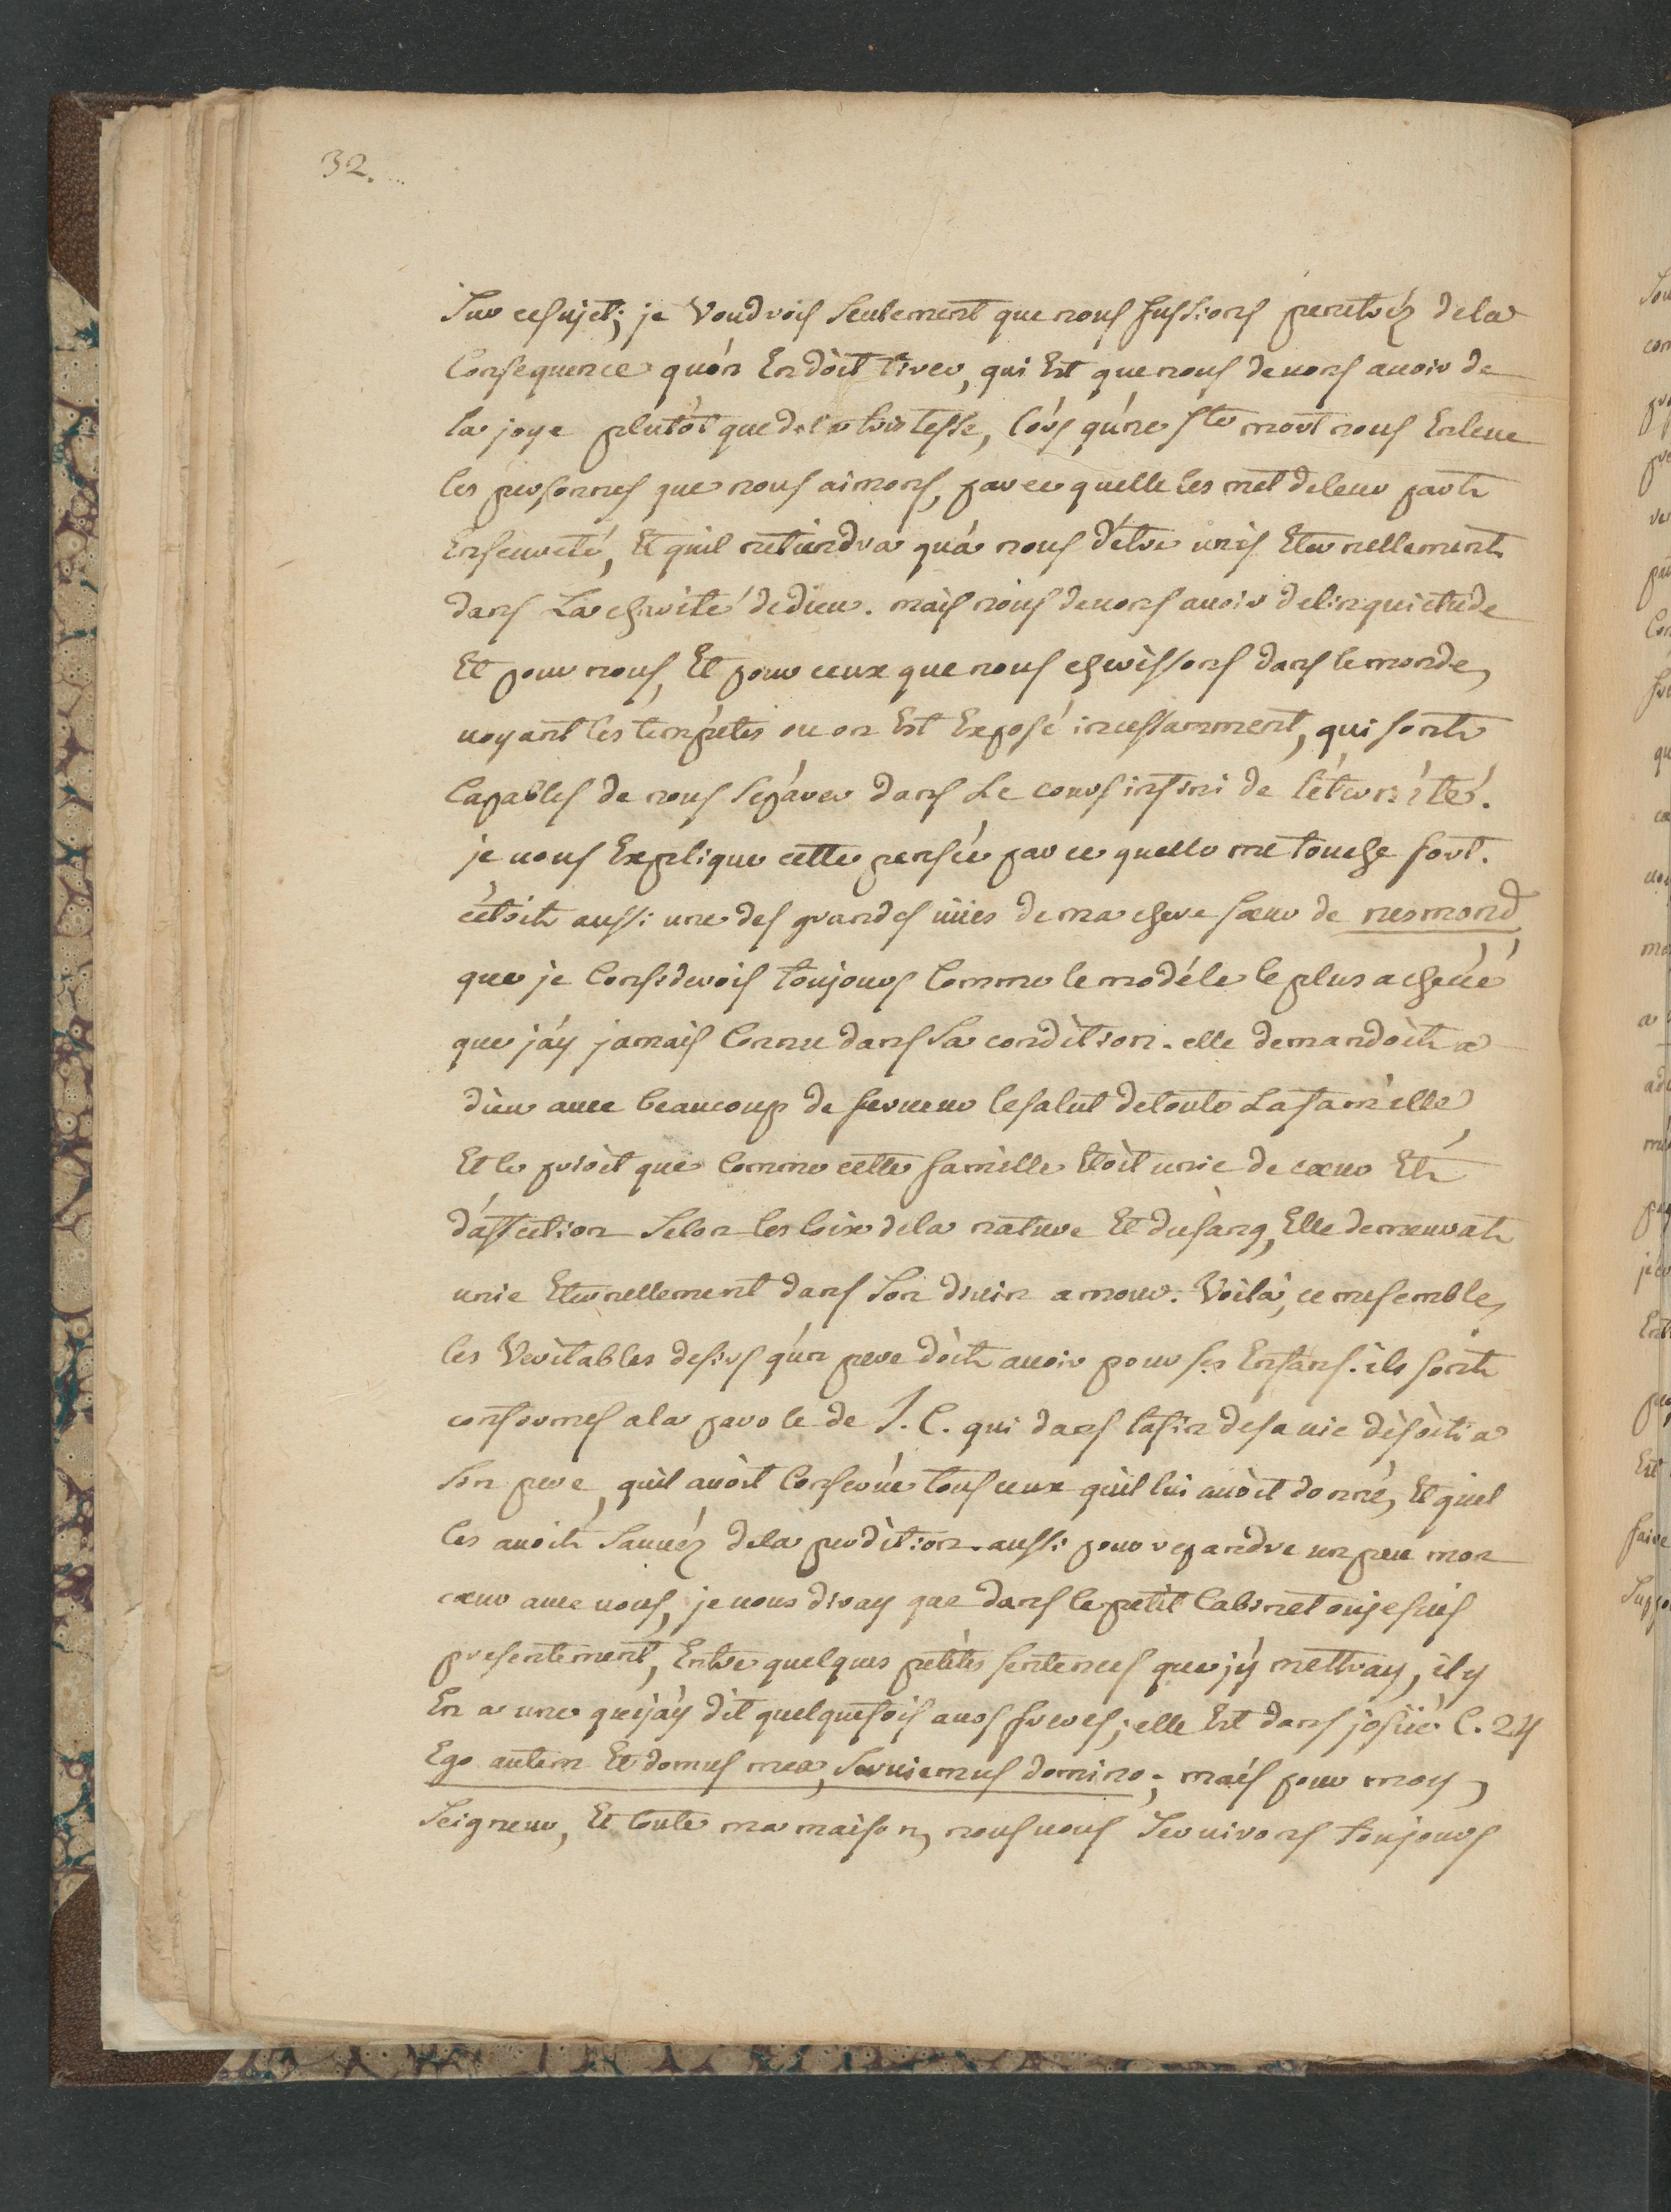 32.
Sur ce sujet; je Voudrois Seulement que nous fussions penetréz de la
Consequence qu'on En doit tirer, qui Est que nous devons avoir de
la joye plutôt que de la tristesse, lors qu'une Ste mort nous Enleve
les personnes que nous aimons, parce quelle les met de leur part
En seureté, Et quil ne tiendra qu'a nous d'etre unis Eternellement
dans La charité de dieu. mais nous devons avoir de linquietude
Et pour nous, Et pour ceux que nous cherissons dans le monde,
voyant les tempêtes ou on Est Exposé incessamment, qui sont
Capables de nous séparer dans Le cours infini de l'éternité.
je vous Explique cette pensée par ce quelle me touche fort.
c'étoit aussi une des grandes vües de ma chere sœur de nesmond
que je Considerois toujours Comme le modéle le plus achevé
que j'ay jamais Connu dans Sa condition. elle demandoit a
dieu avec beaucoup de ferveur le salut de toute La famille,
Et le prioit que Comme cette famille Etoit unie de cœur Et
d'affection Selon les loix de la nature Et du sang, Elle demeurat
unie Eternellement dans Son divin amour. Voilà, ce me semble,
les Veritables desirs qu'un pere doit avoir pour ses Enfans. ils sont
conformes a la parole de J. C. qui dans la fin de sa vie disoit a
Son pere, quil avoit Conservé tous ceux quil lui avoit donné, Et quil
les avoit Sauvéz de la perdition. aussi pour repandre un peu mon
cœur avec vous, je vous diray que dans le petit Cabinet ou je suis
presentement, Entre quelques petites sentences que j'y mettray, il y
En a une que j'ay dit quelquefois a vos freres; elle Est dans josüé C. 24
Ego autem Et domus mea, Serviemus domino; mais pour moy,
Seigneur, Et toute ma maison, nous vous Servirons toujours